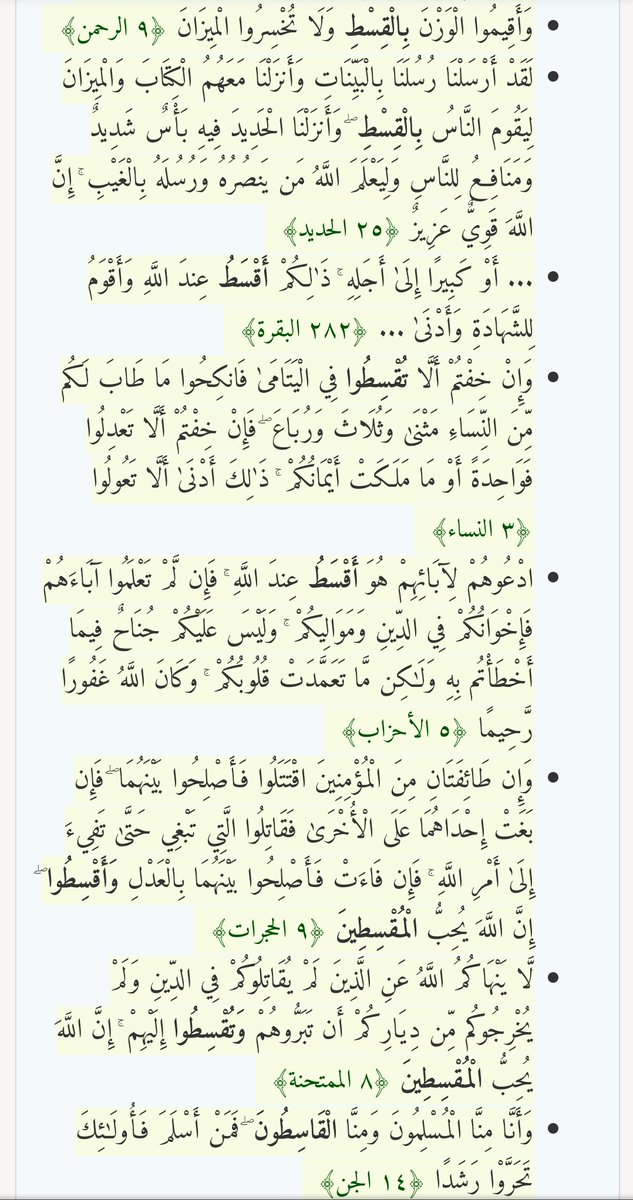 • وَأَقِيمُوا الْوَزْنَ بِالْقِسْطِ وَلَا تُخْسِرُوا الْمِيزَانَ ﴿٩ الرحمن﴾
• لَقَدْ أَرْسَلْنَا رُسُلَنَا بِالْبَيِّنَاتِ وَأَنزَلْنَا مَعَهُمُ الْكِتَابَ وَالْمِيزَانَ
لِيَقُومَ النَّاسُ بِالْقِسْطِ ۖ وَأَنزَلْنَا الْحَدِيدَ فِيهِ بَأْسٌ شَدِيدٌ
وَمَنَافِعُ لِلنَّاسِ وَلِيَعْلَمَ اللَّهُ مَن يَنصُرُهُ وَرُسُلَهُ بِالْغَيْبِ ۚ إِنَّ
اللَّهَ قَوِيٌّ عَزِيزٌ ﴿٢٥ الحديد﴾
• ... أَوْ كَبِيرًا إِلَىٰ أَجَلِهِ ۚ ذَٰلِكُمْ أَقْسَطُ عِندَ اللَّهِ وَأَقْوَمُ
لِلشَّهَادَةِ وَأَدْنَىٰ ... ﴿٢٨٢ البقرة﴾
• وَإِنْ خِفْتُمْ أَلَّا تُقْسِطُوا فِي الْيَتَامَىٰ فَانكِحُوا مَا طَابَ لَكُم
مِّنَ النِّسَاءِ مَثْنَىٰ وَثُلَاثَ وَرُبَاعَ ۖ فَإِنْ خِفْتُمْ أَلَّا تَعْدِلُوا
فَوَاحِدَةً أَوْ مَا مَلَكَتْ أَيْمَانُكُمْ ۚ ذَٰلِكَ أَدْنَىٰ أَلَّا تَعُولُوا
﴿٣ النساء﴾
• ادْعُوهُمْ لِآبَائِهِمْ هُوَ أَقْسَطُ عِندَ اللَّهِ ۚ فَإِن لَّمْ تَعْلَمُوا آبَاءَهُمْ
فَإِخْوَانُكُمْ فِي الدِّينِ وَمَوَالِيكُمْ ۚ وَلَيْسَ عَلَيْكُمْ جُنَاحٌ فِيمَا
أَخْطَأْتُم بِهِ وَلَٰكِن مَّا تَعَمَّدَتْ قُلُوبُكُمْ ۚ وَكَانَ اللَّهُ غَفُورًا
رَّحِيمًا ﴿٥ الأحزاب﴾
• وَإِن طَائِفَتَانِ مِنَ الْمُؤْمِنِينَ اقْتَتَلُوا فَأَصْلِحُوا بَيْنَهُمَا ۖ فَإِن
بَغَتْ إِحْدَاهُمَا عَلَى الْأُخْرَىٰ فَقَاتِلُوا الَّتِي تَبْغِي حَتَّىٰ تَفِيءَ
إِلَىٰ أَمْرِ اللَّهِ ۚ فَإِن فَاءَتْ فَأَصْلِحُوا بَيْنَهُمَا بِالْعَدْلِ وَأَقْسِطُوا ۖ
إِنَّ اللَّهَ يُحِبُّ الْمُقْسِطِينَ ﴿٩ الحجرات﴾
• لَّا يَنْهَاكُمُ اللَّهُ عَنِ الَّذِينَ لَمْ يُقَاتِلُوكُمْ فِي الدِّينِ وَلَمْ
يُخْرِجُوكُم مِّن دِيَارِكُمْ أَن تَبَرُّوهُمْ وَتُقْسِطُوا إِلَيْهِمْ ۚ إِنَّ اللَّهَ
يُحِبُّ الْمُقْسِطِينَ ﴿٨ الممتحنة﴾
• وَأَنَّا مِنَّا الْمُسْلِمُونَ وَمِنَّا الْقَاسِطُونَ ۖ فَمَنْ أَسْلَمَ فَأُولَٰئِكَ
تَحَرَّوْا رَشَدًا ﴿١٤ الجن﴾